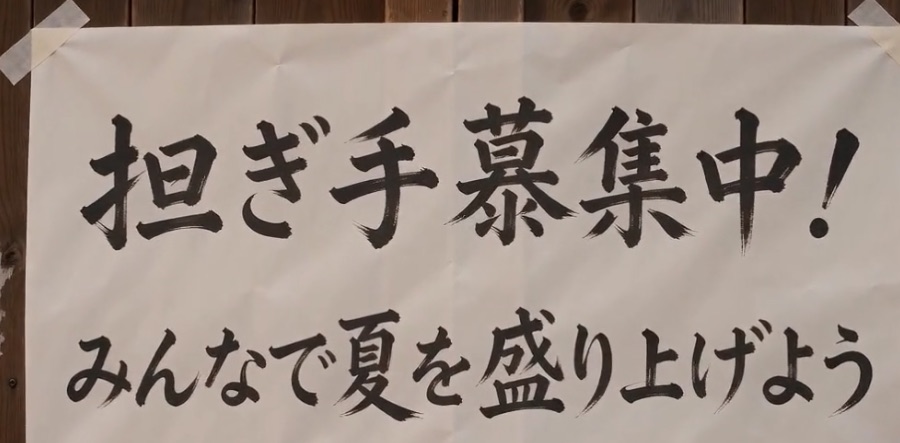 担ぎ手慕集中!
みんなで夏を盛り上げよう